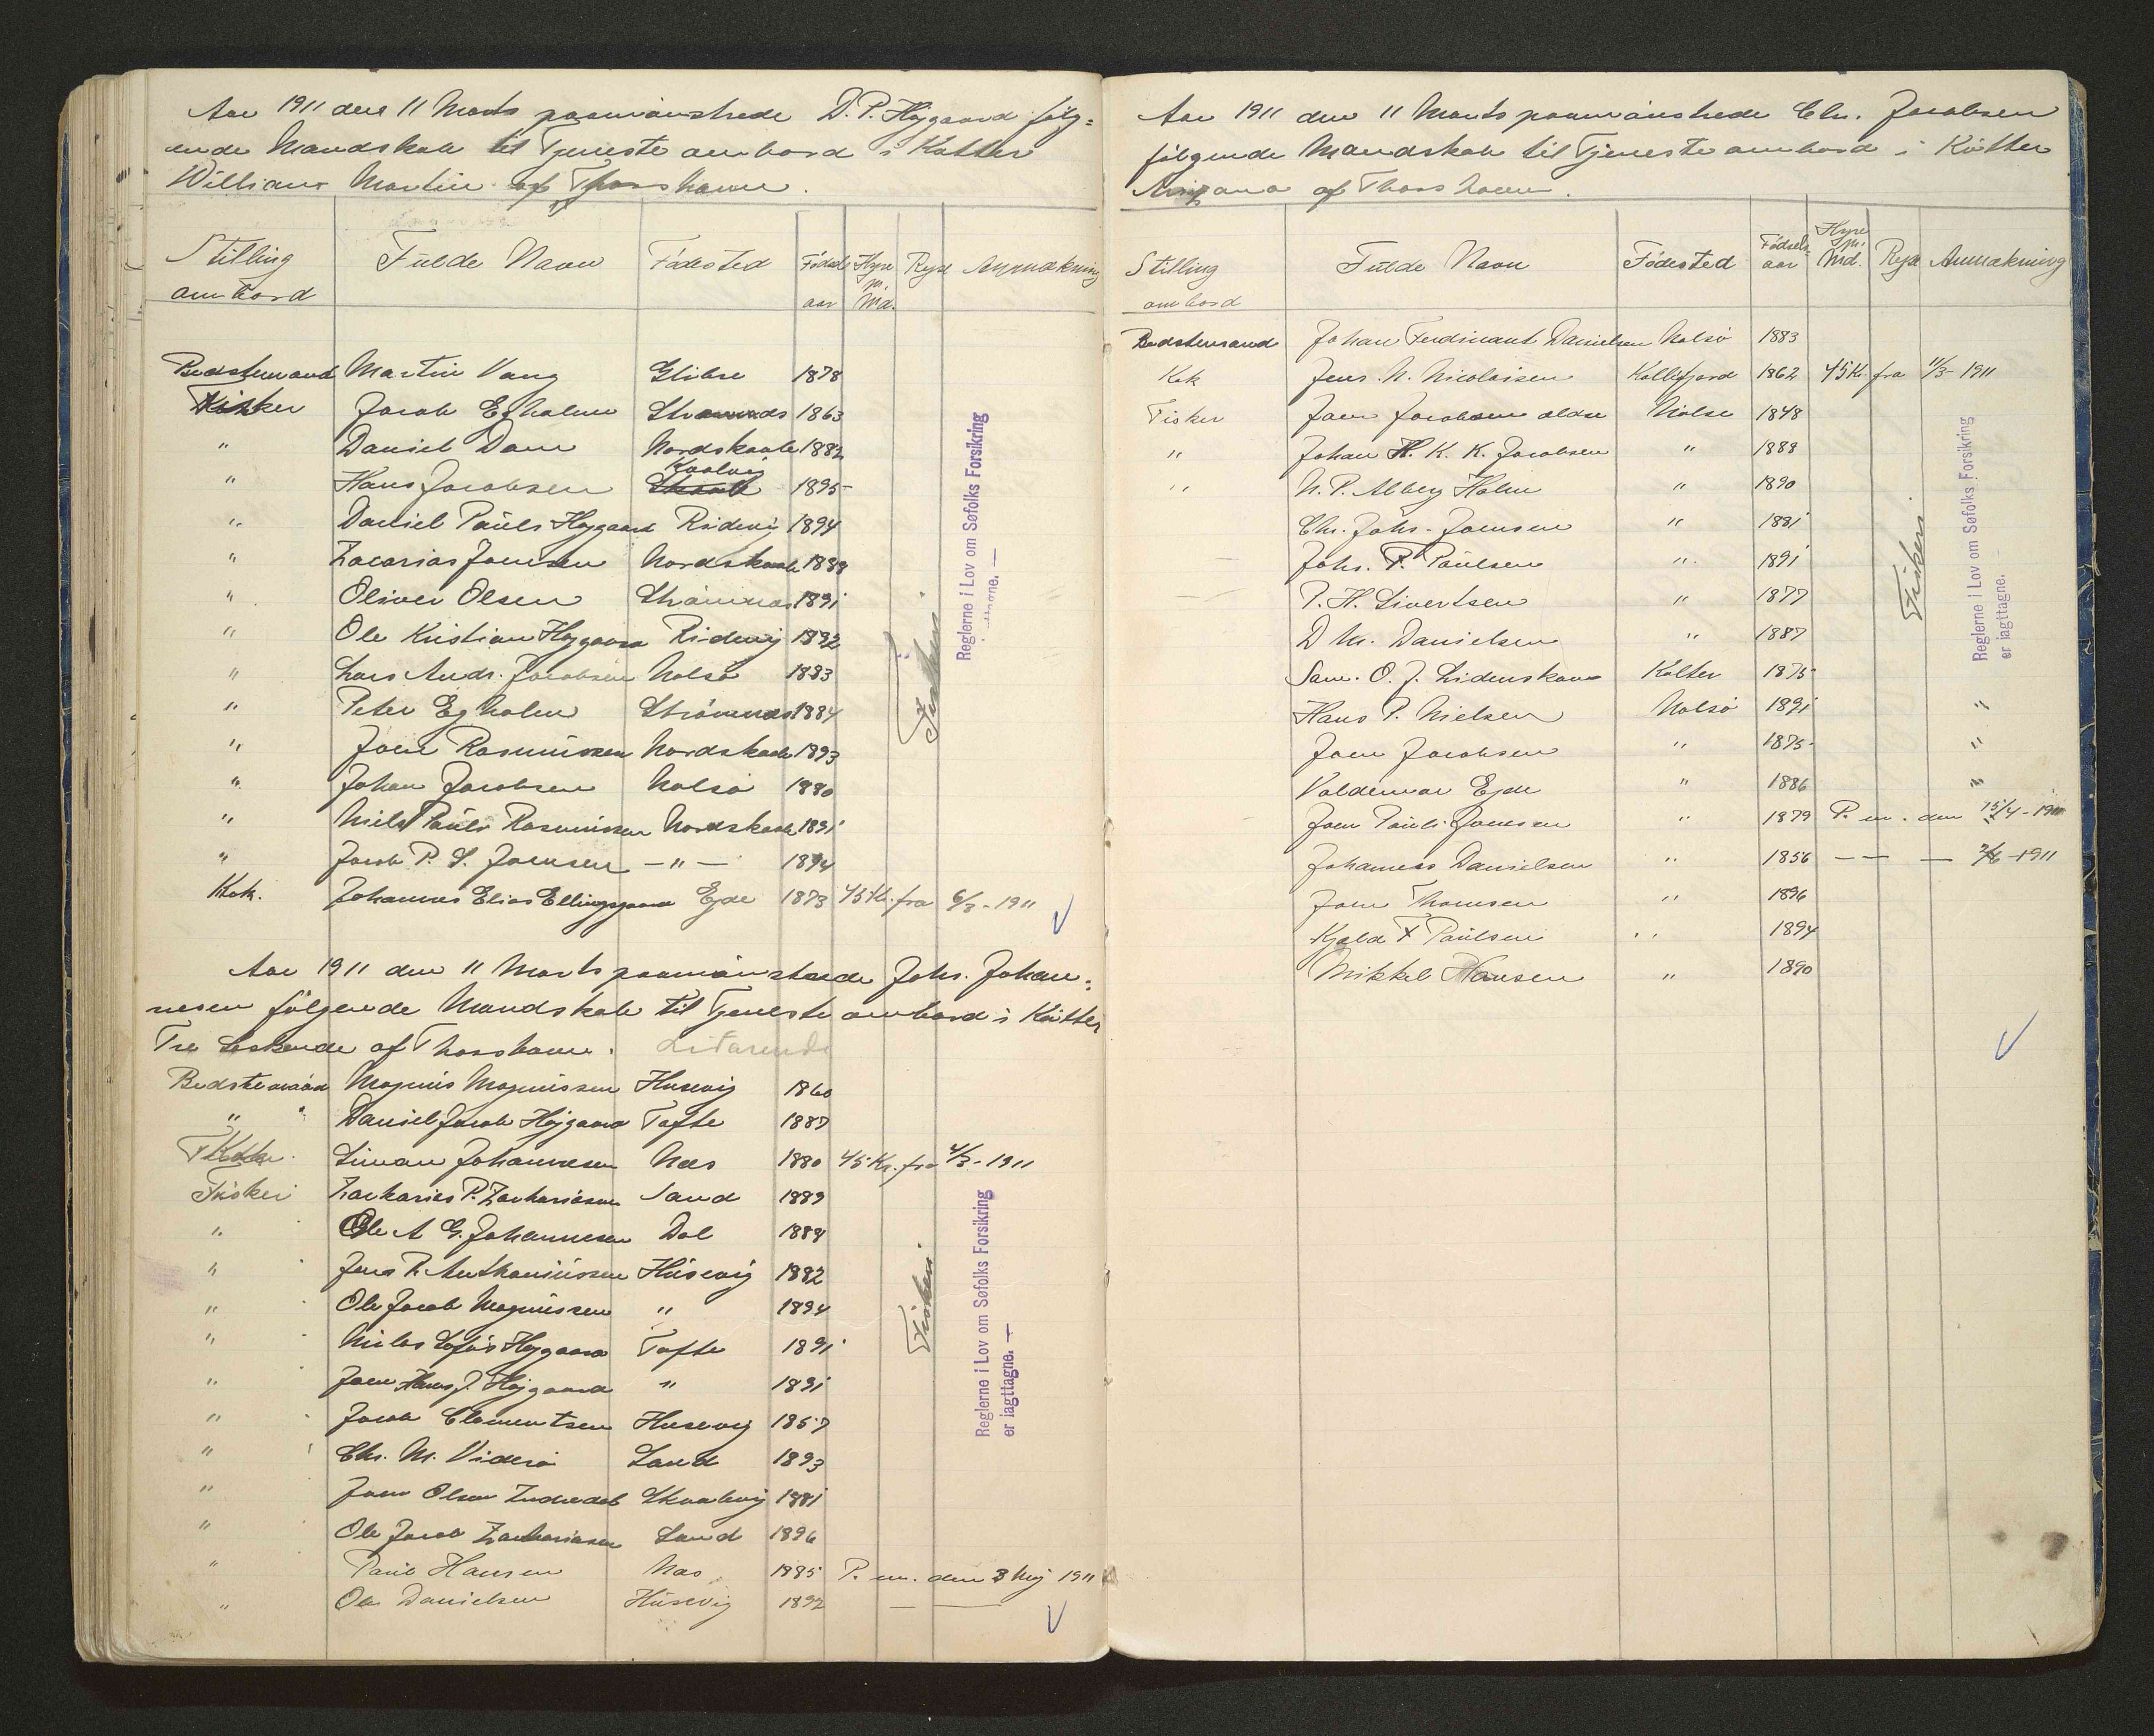 Aar 1911 den 11 Marts paamönstrede D. P. Højgaard følg=
ende Mandskab til Tjeneste ombord i Kutter
William Martin af Thorshavn.
Stilling ombord Fulde Navn Födested Födsels aar Hyre p. Md. Rejse Anmærkning
Bedstemand Martin Vang Glibre 1878
Fisker Jacob Egholm Strömnæs 1863
" Daniel Dam Nordskaale 1882
" Hans Jacobsen Kvalvig 1895
" Daniel Pauli Højgaard Ridevig 1894
" Zacarias Joensen Nordskaale 1889
" Oliver Olsen Strömnæs 1891
" Ole Kristian Højgaard Ridevig 1892
" Lars Andr. Jacobsen Nolsö 1883
" Peter Egholm Strömnæs 1884
" Joen Rasmussen Nordskaale 1893
" Johan Jacobsen Nolsö 1880
" Niels Pauli Rasmussen Nordskaale 1891
" Jacob P. S. Joensen — " — 1894
Kok. Johannes Elias Ellingsgaard Ejde 1873 45 Kr. fra 6/3 - 1911
Fiskeri
Reglerne i Lov om Søfolks Forsikring
Aar 1911 den 11 Marts paamönstrede Johs. Johan=
nesen følgende Mandskab til Tjeneste ombord i Kutter
Tre Söskende af Thorshavn.
Bedstemand Magnus Magnussen Husevig 1860
" Daniel Jacob Højgaard Tofte 1887
Kok Simon Johannesen Næs 1880 45 Kr. fra 4/3 - 1911
Fisker Zacharias P. Zachariasen Sand 1889
" Ole A G. Johannesen Dal 1889
" Jens P. Anthoniussen Húsevig 1892
" Ole Jacob Magnussen " 1894
" Niclas Højgaard Tofte 1891
" Joen Hans J. Højgaard " 1891
" Jacob Clementsen Husevig 1857
" Chr. M. Viderö Sand 1893
" Joen Olsen Skaalevig 1881
" Ole Jacob Zachariasen Sand 1896
" Paul Hansen Næs 1885 P. m. den 3 Maj 1911
" Ole Danielsen Húsevig 1892 — —
Fiskeri
Reglerne i Lov om Søfolks Forsikring
er iagttagne. —
Aar 1911 den 11 Marts paamönstrede Chr. Jacobsen
følgende Mandskab til Tjeneste ombord i Kutter
af Thorshavn.
Stilling ombord Fulde Navn Födested Födsels aar Hyre p. Md. Rejse Anmærkning
Bedstemand Johan Ferdinant Danielsen Nolsö 1883
Kok Jens. N. Nicolaisen Kollefjord 1862 45 Kr. fra 11/3 - 1911
Fisker Joen Jacobsen ældre Nolsö 1848
" Johan H. K. K. Jacobsen " 1888
" N. P. Alberg Holm " 1890
Chr. Johs. Joensen " 1881
Johs. F. Paulsen " 1891
P. H. Sivertsen " 1877
D M. Danielsen " 1887
Sam. O. J. Lidenskov Kolter 1875
Hans P. Nielsen Nolsö 1891 "
Joen Jacobsen " 1875 "
Valdemar Ejde " 1886 "
Joen Pauli Joensen " 1879 P. m. den 15/4 - 1911
Johannes Danielsen " 1856 — — — 2/6 - 1911
Joen Thomsen " 1896
Kjeld F Paulsen " 1894
Mikkel Hansen " 1890
Fiskeri
Reglerne i Lov om Søfolks Forsikring
er iagttagne. —